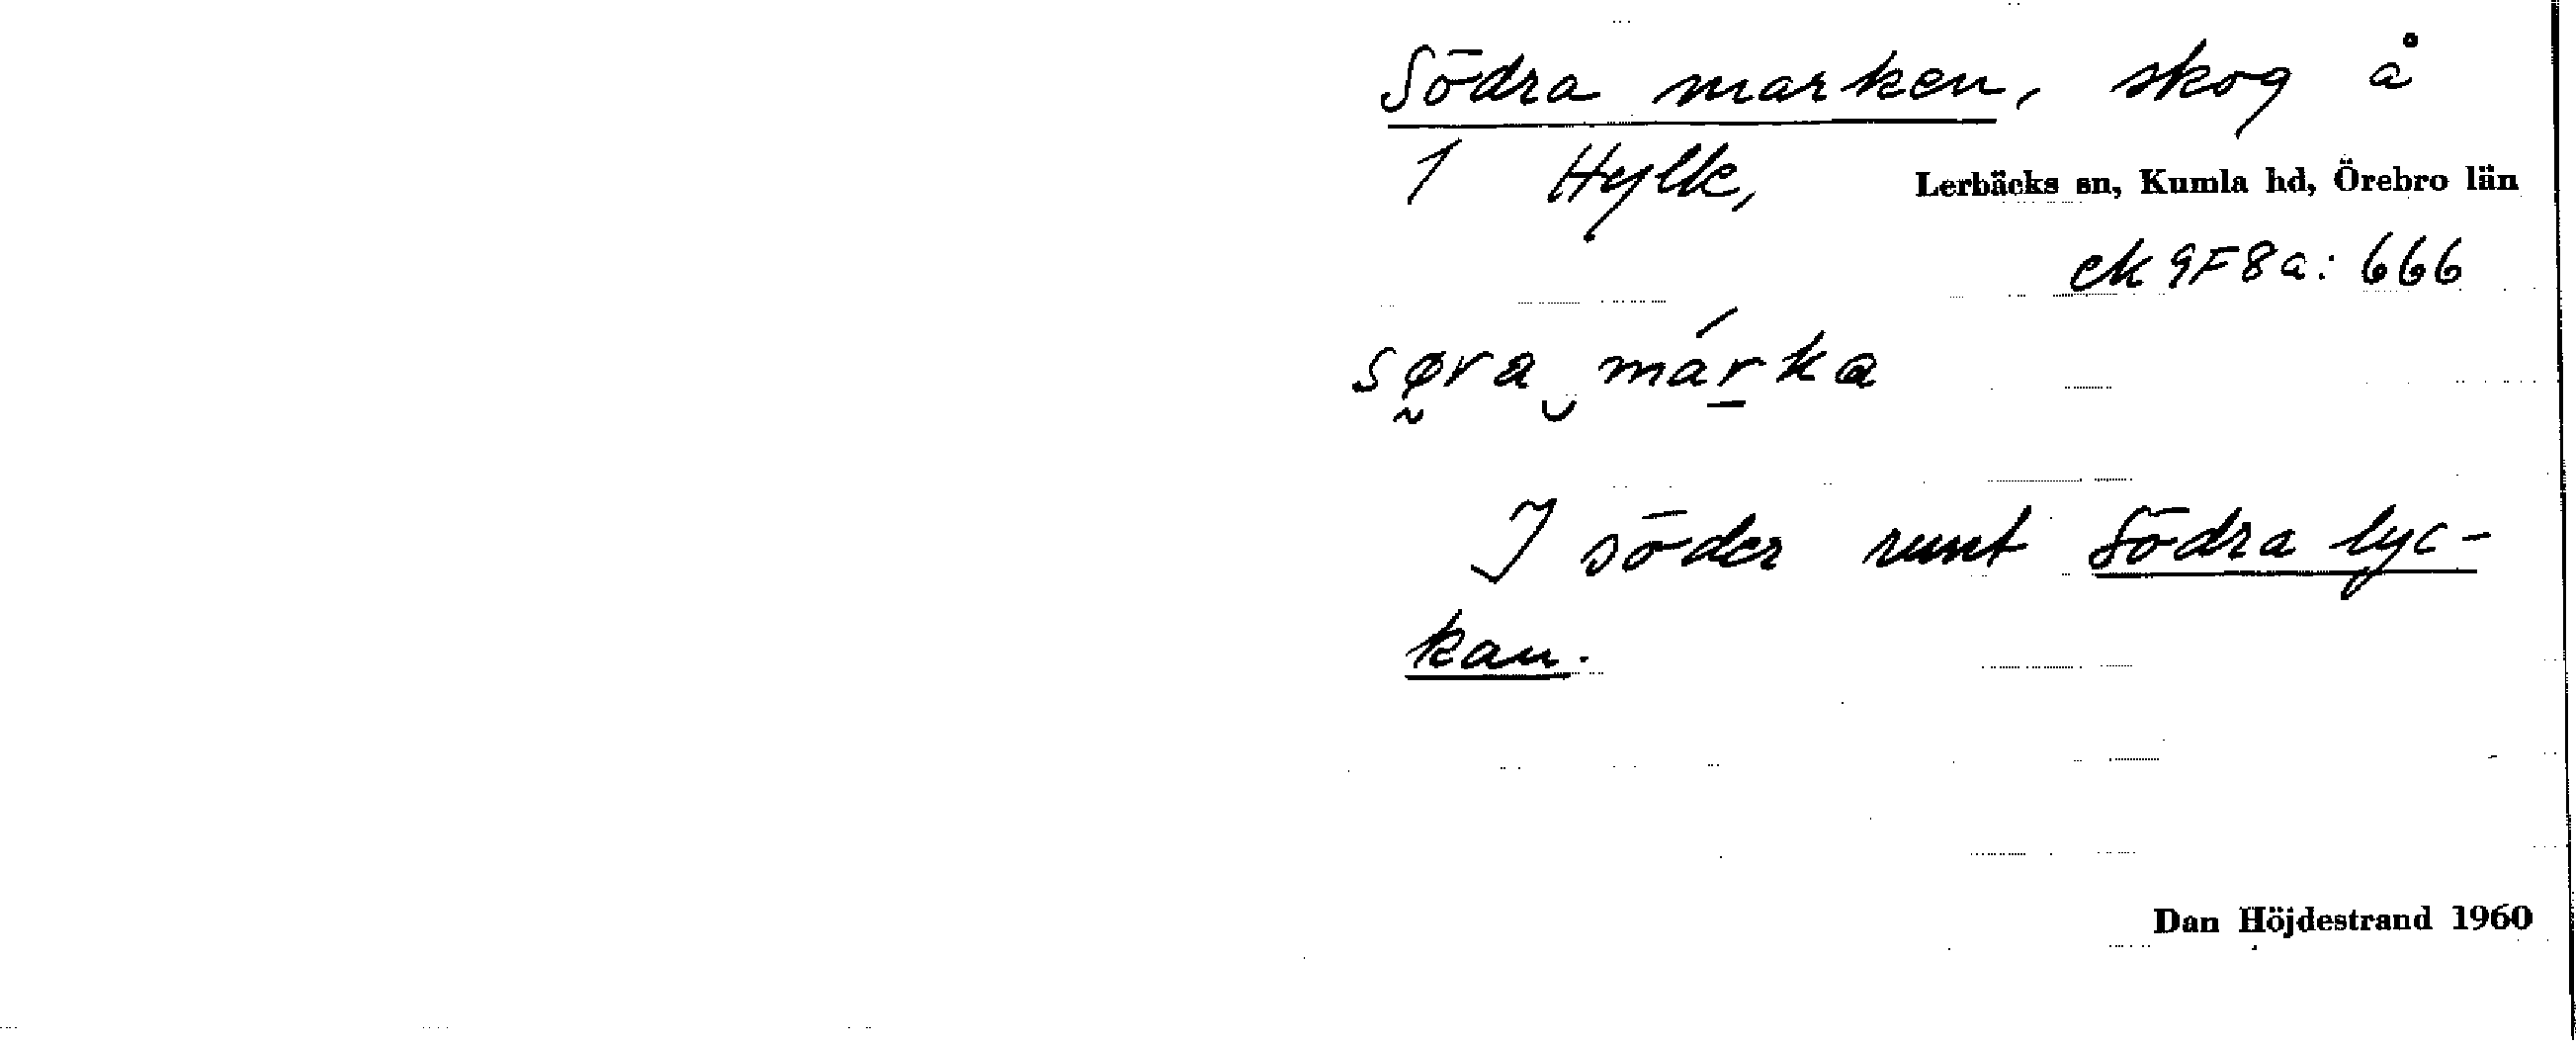 Södra marken, skog å
1 Hylle, Lerbäcks sn, Kumla hd, Örebro län
ek 9F8a: 666
sø̰ra‿márka
I söder runt Södra lyc-
kan.
Dan Höjdestrand 1960